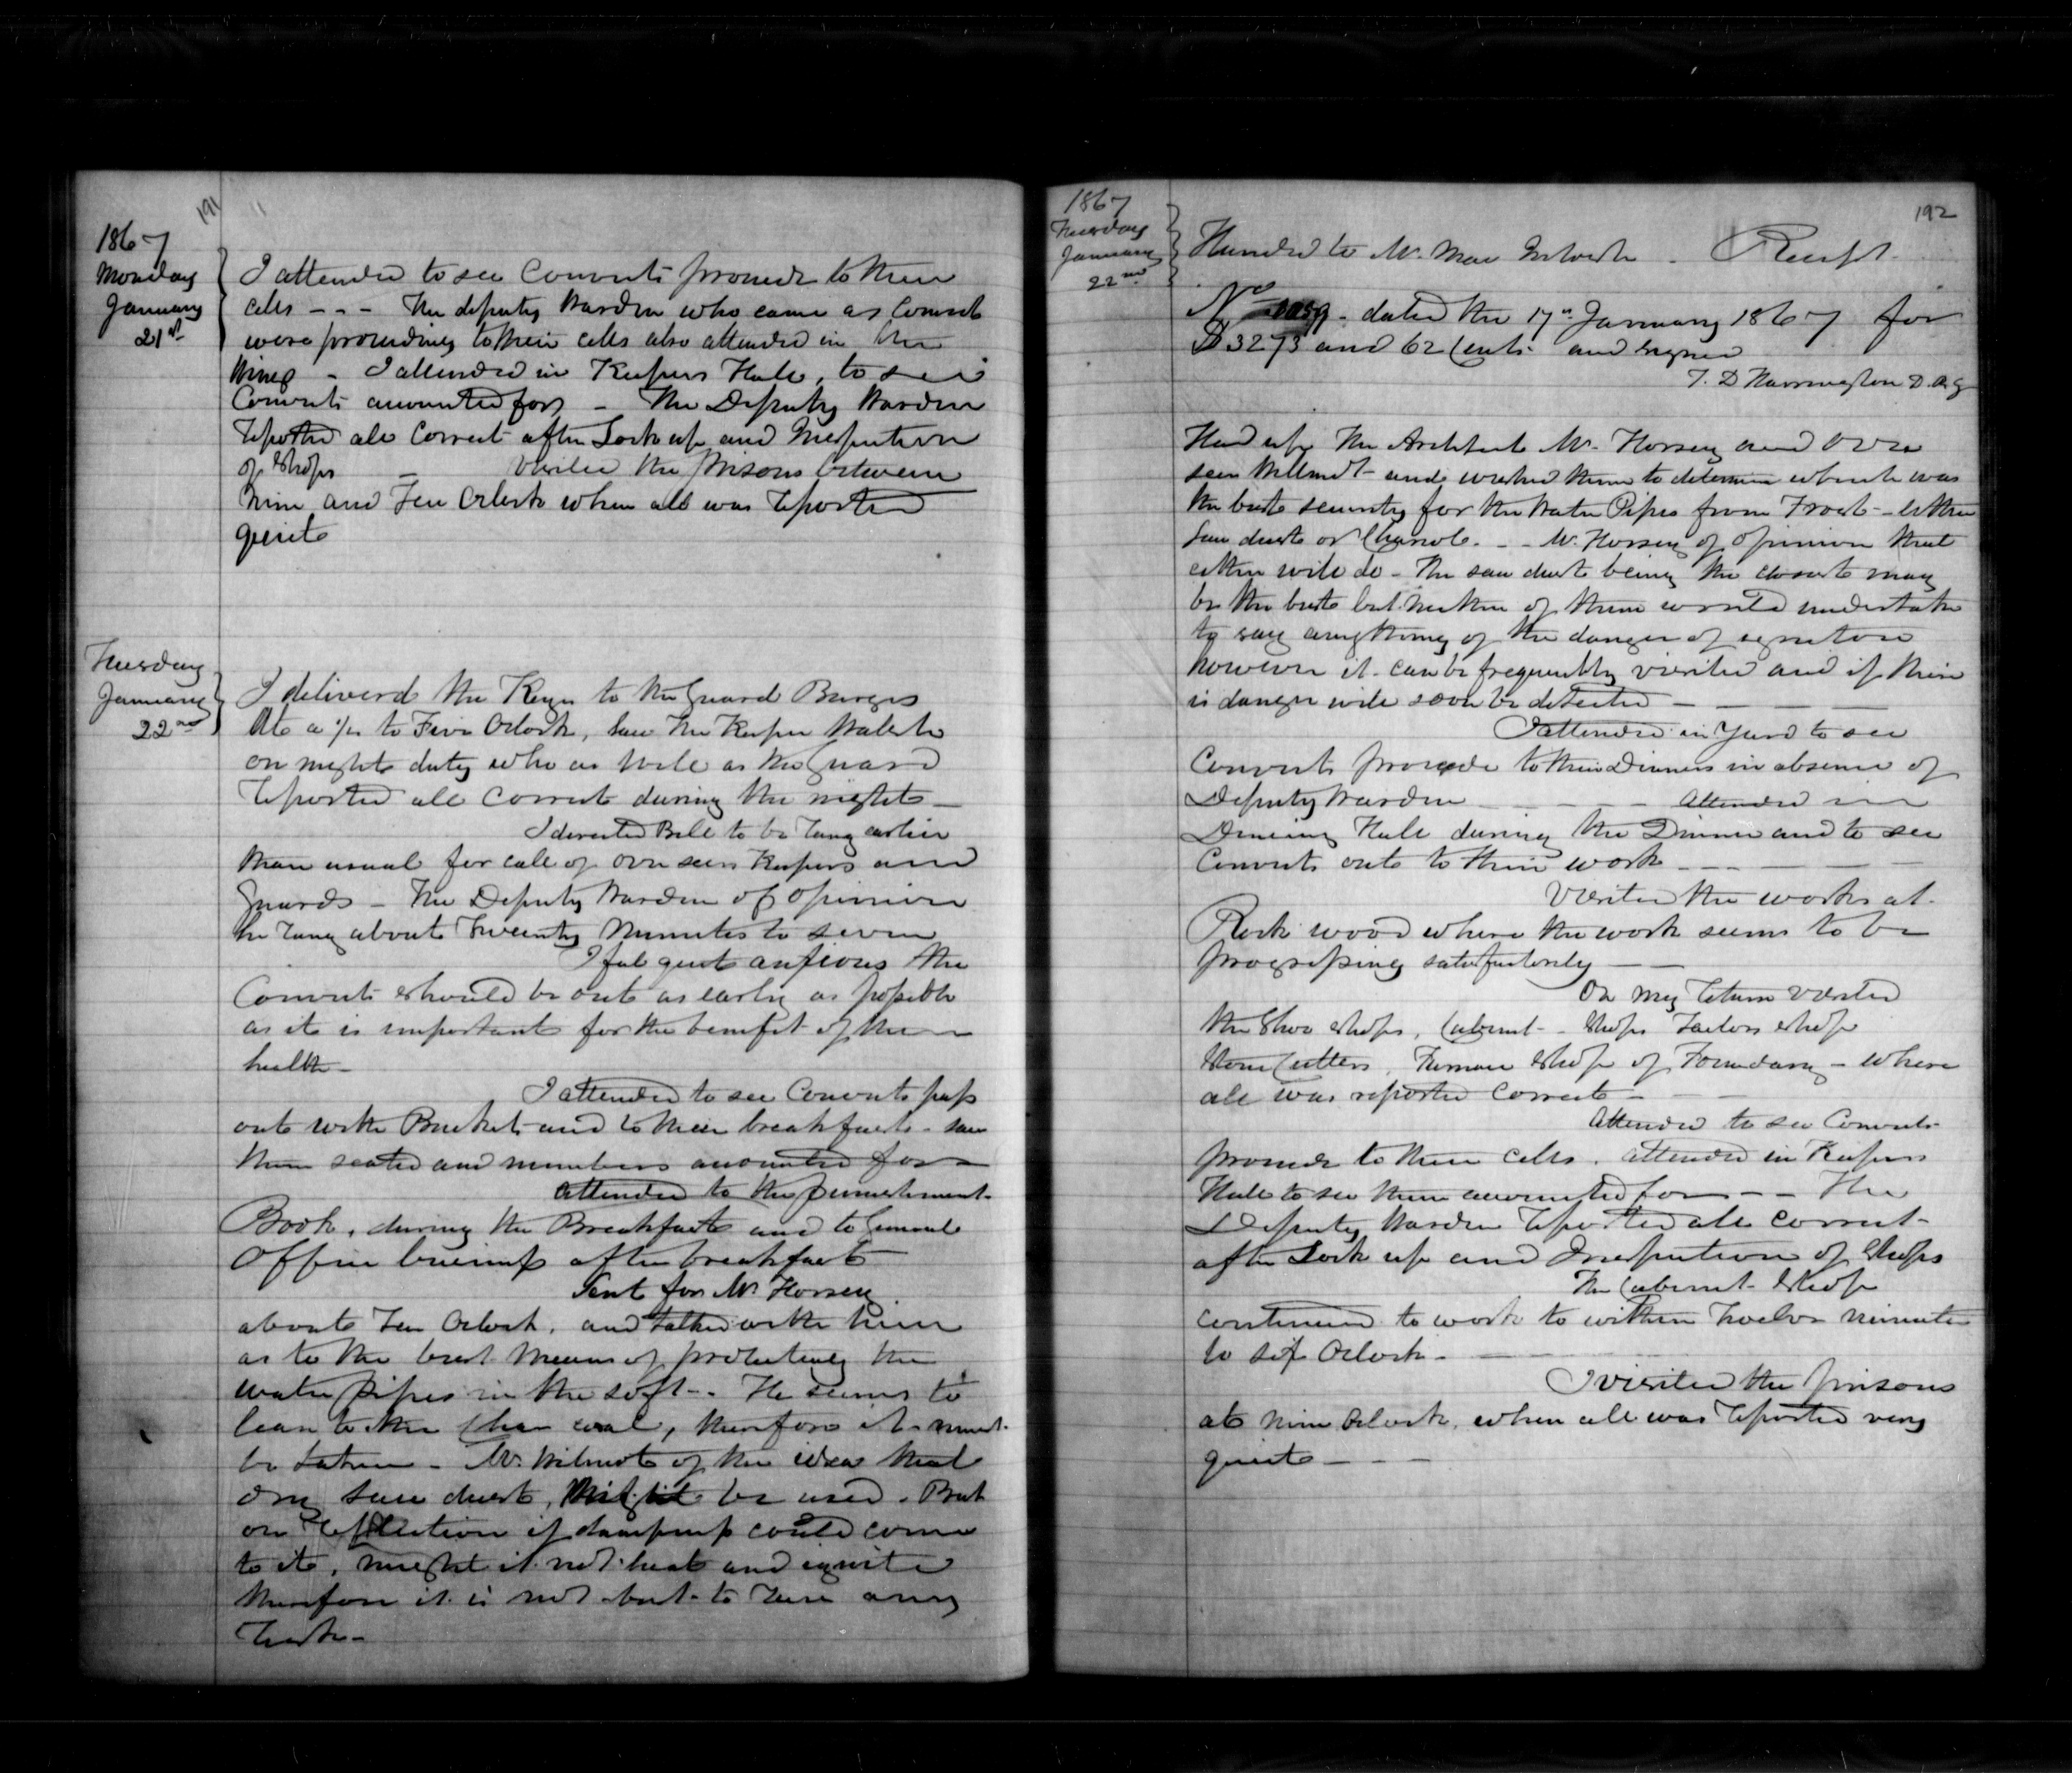 191
1867
Monday
January
21st
I attended to see Convicts proceed to their
cells - - - The deputy Warden who came as Convicts
were proceeding to their cells also attended in the
Wing - I attended in Keepers Hall, to see
Convicts accounted for - The Deputy Warden
reported all Correct after Lock up and Inspection
of Shops - Visited the prisons between
Nine and Ten Oclock when all was reported
quiet
Tuesday
January
22nd
I deliverd the Keys to the Guard Burges
At a 1/4 to Five Oclock, saw the Keeper
on night duty who as well as the Guard
reported all Correct during the night -
I directed Bell to be rung earlier
than usual for call of overseers Keepers and
Guards - The Deputy Warden of opinion
he rung about Twenty Minutes to seven
I feel quit anxious the
Convicts should be out as early as possible
as it is important for the benefit of their
health -
I attended to see Convicts pass
out with Buckets and to their breakfast - saw
them seated and numbers accounted for -
attended to the punishment
Book, during the Breakfast and to General
Office business after breakfast
Sent for Mr Horsey
about Ten Oclock, and talked with him
as to the best means of protecting the
water pipes in the soft - He seems to
lean to the Char coal, therefore it must
be taken - Mr. Wilmot of the idea that
dry saw dust, might be used. But
on reflection if dampness could come
to it, might it not heat and ignite
therefore it is not best to run any
risk -
192
1867
Tuesday
January
22nd
Handed to Mr. Mac Intosh - Receipt
No dated the 17th January 1867 for
$3273 and 62 Cents and signed
T. D Harrington D. R. G
Had up the Architect Mr. Horsey and Over
seer Willmot and wished them to determine which was
the best security for the Water Pipes from Frost - either
saw dust or Charcole. - - Mr. Horsey of opinion that
either will do - The saw dust being the closest may
be the best but neither of them would undertake
to say anything of the danger of ignition
however it can be frequently visited and if there
is danger will soon be detected - - - -
I attended in Yard to see
Convicts proceede to their Dinners in absence of
Deputy Warden - - - - Attended in
Dineing Hall during the Dinner and to see
Convicts out to their work - - - -
Visited the works at
Rock wood where the work seems to be
progressing satisfactorily - -
On my return Visited
the Shoe Shops, Cabinet - Shops Tailors Shop
Stone Cutters, Furnace Shop of Foundary - where
all was reported Correct - - -
Attended to see Convicts
proceede to their Cells. attended in Keepers
Hall to see them accounted for - - - The
Deputy Warden reported all correct -
after Lock up and Inspection of Shops
The Cabinet Shop
continued to work to within twelve minutes
to six Oclock -
I visited the prisons
at nine Oclock, when all was reported very
quiet - - -